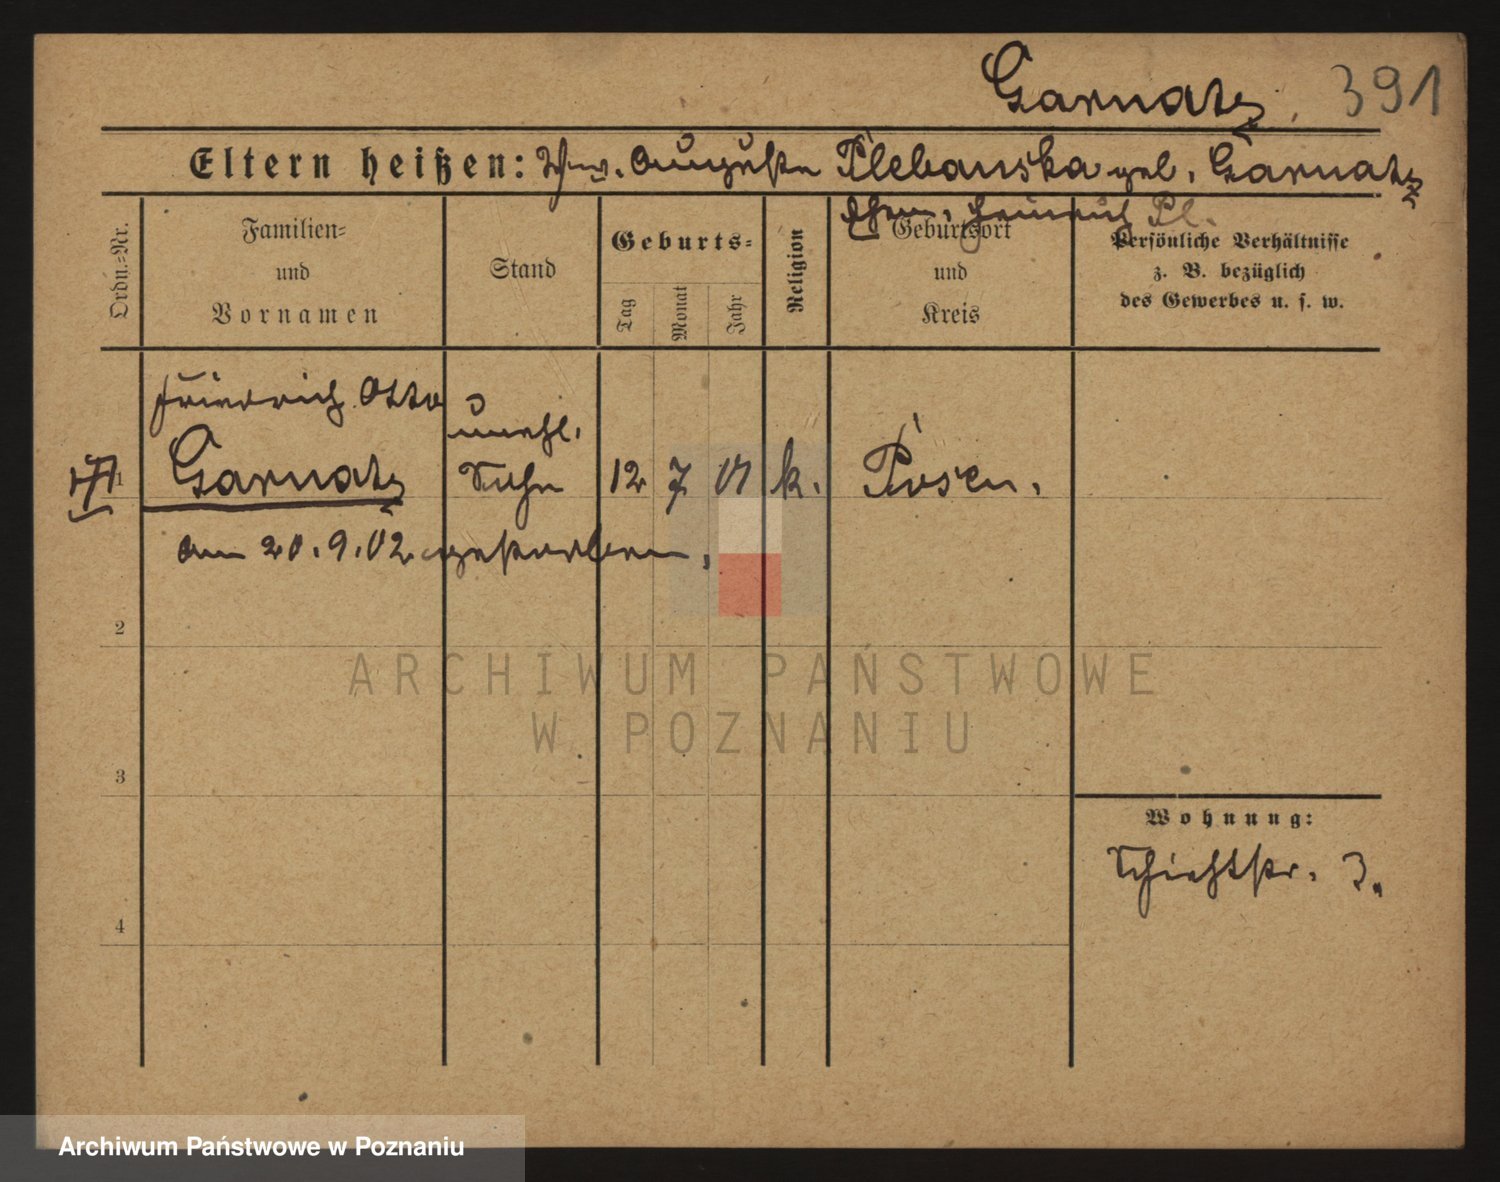 Garnatz. 391
Eltern heißen: Ww. Auguste Plebanska geb. Garnatz
Ehem. Heinrich Pl.
Ordn.-Nr.
Familien-
und
Vornamen
Stand
Geburts-
Tag
Monat
Jahr
Religion
Geburtsort
und
Kreis
Persönliche Verhältnisse
z. B. bezüglich
des Gewerbes u. s. w.
Friedrich Otto
unehl.
1 Garnatz Sohn 12 7 01 k. Posen.
am 20.9.02 gestorben.
2
3
4
Wohnung:
Schichtstr. 3.
ARCHIWUM PAŃSTWOWE
W POZNANIU
Archiwum Państwowe w Poznaniu